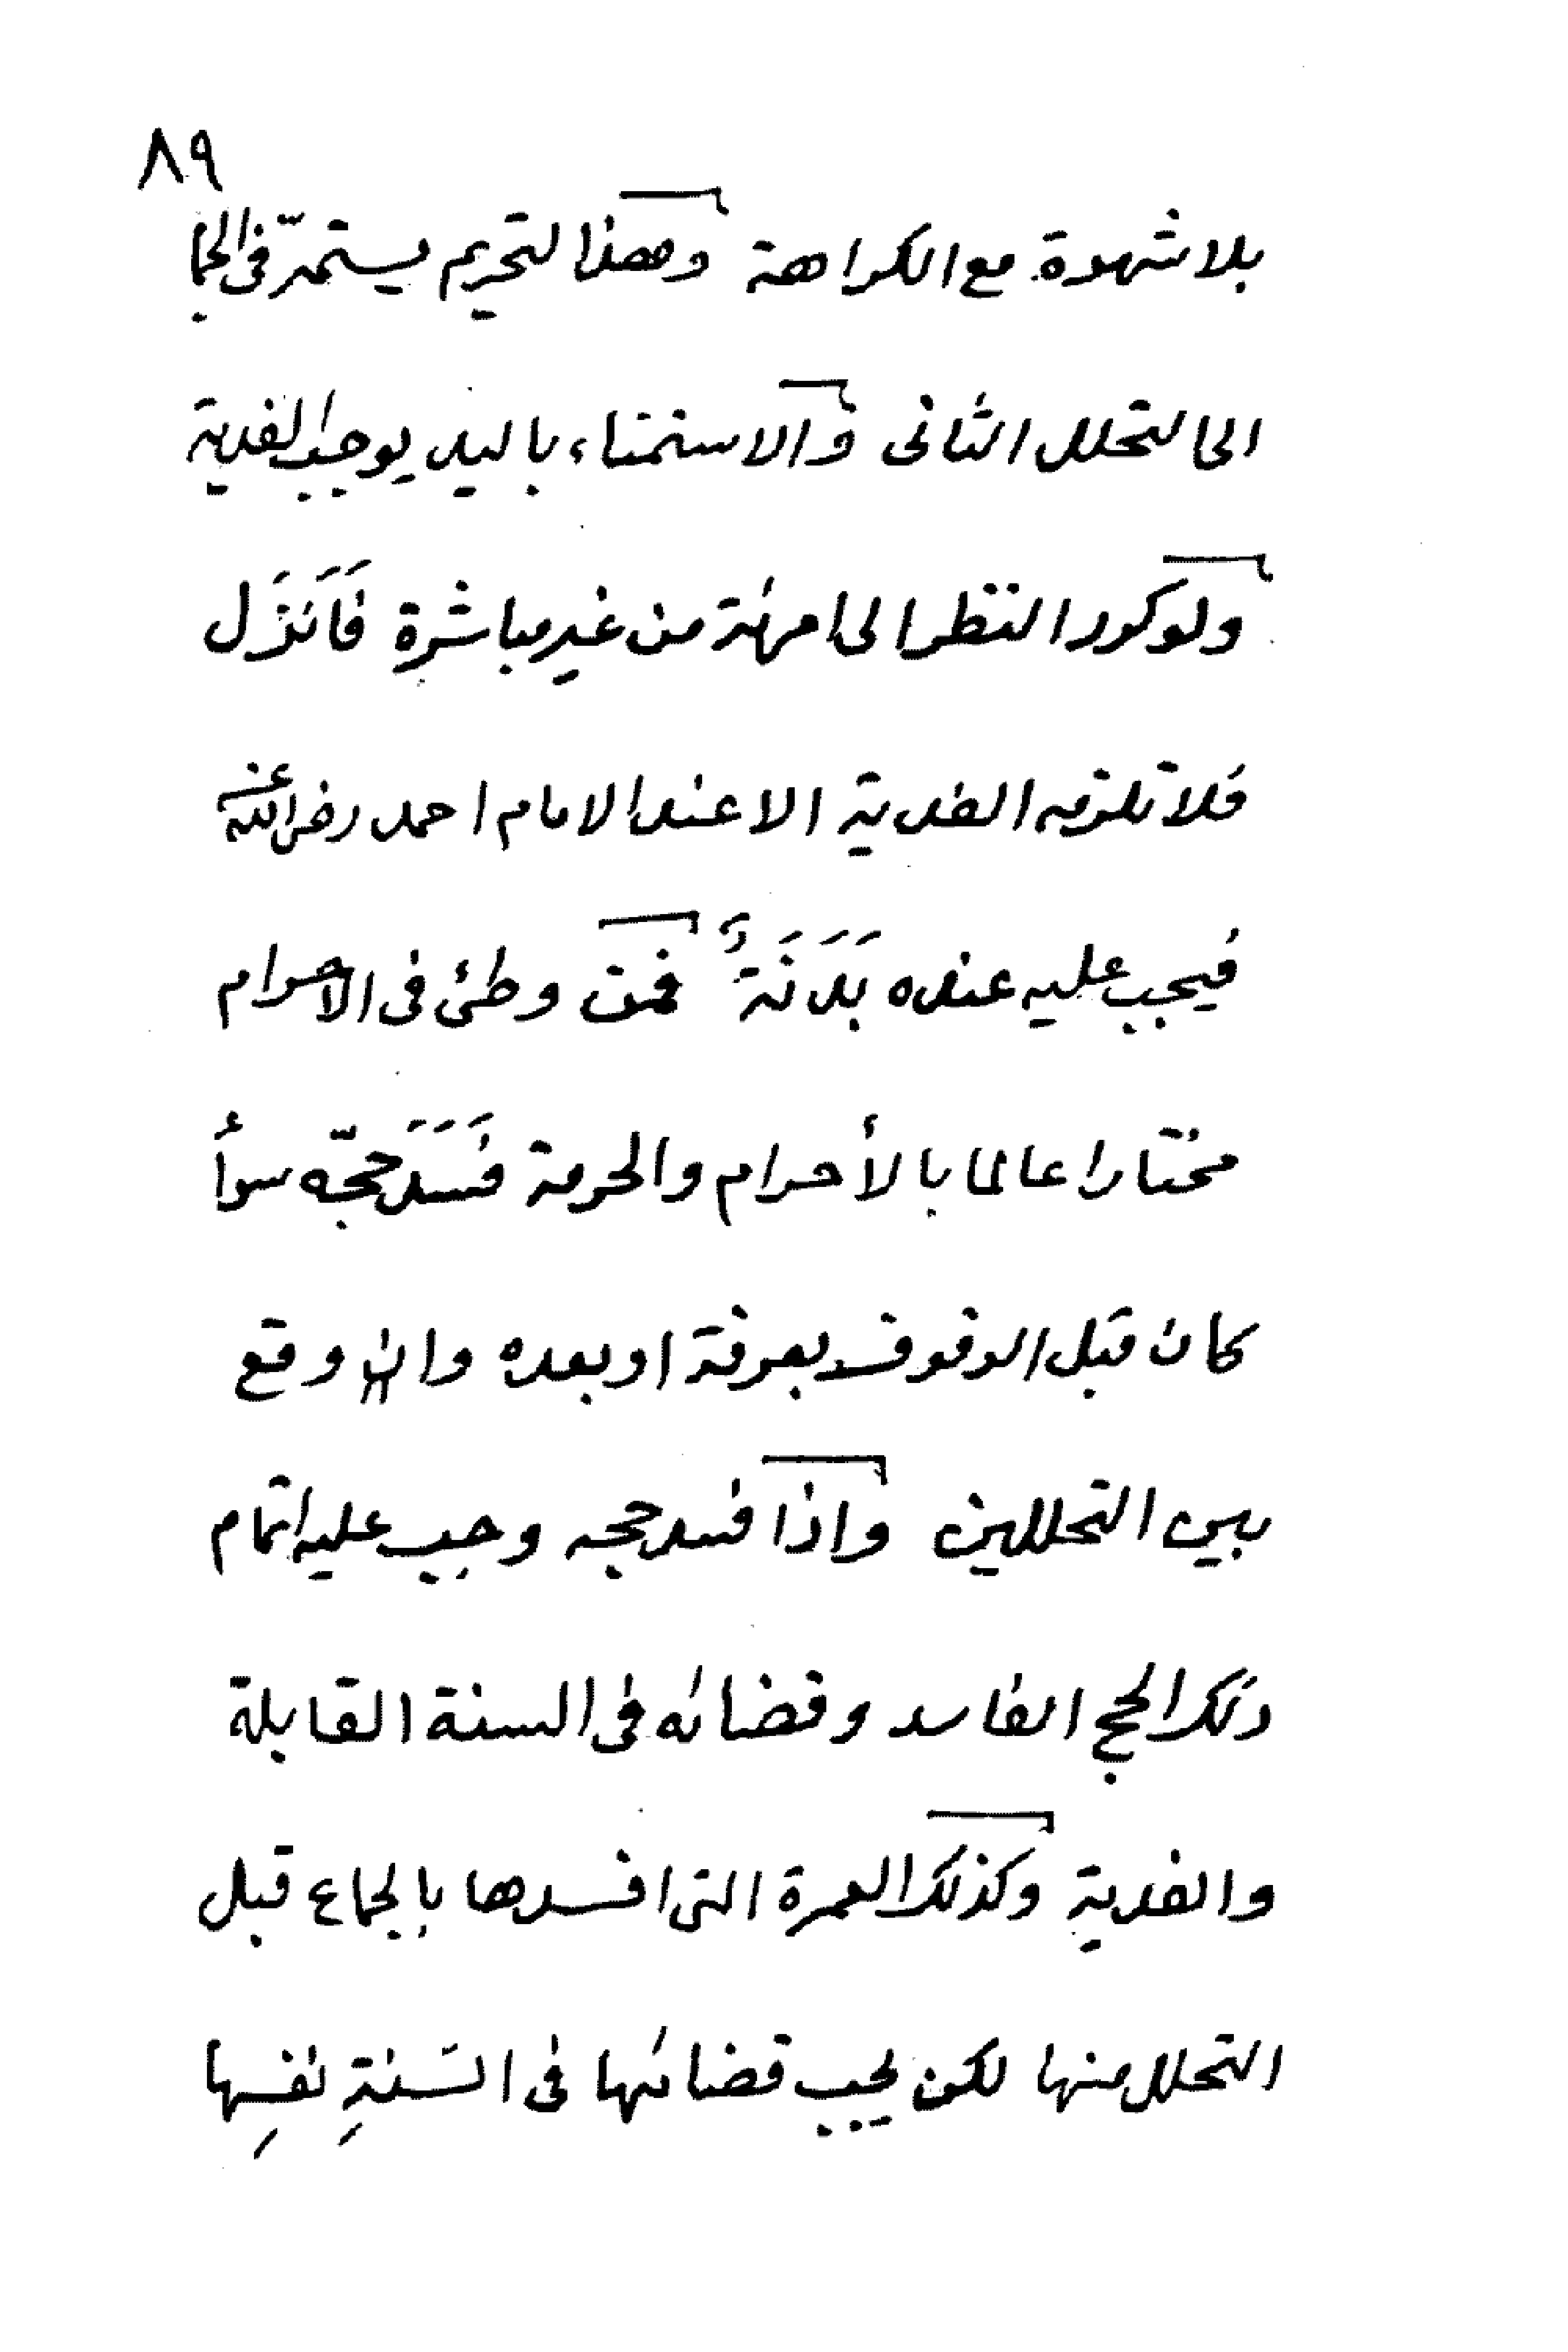 ٨٩
بلا شهوة مع الكراهة وهذا لتحريم يستمرّ فى الجما
الى التحلل الثانى والاستمناء باليد يوجب الفدية
ولو كرر النظر الى امرئة من غير مباشرة فَاَنزَل
فلا تلزمه الفدية الا عند الامام احمد رضى الله عنه
فيجب عليه عنده بَدَنَةٌ فمن وطئ فى الاحرام
مختارا عالما بالأحرام والحرمة فَسَدَ حجّه سوأً
كان قبل الوقوف بعرفة او بعده وان وقع
بين التحللين واذا فسد حجه وجب عليه اتمام
ذلك الحج الفاسد وقضائه فى السنة القابلة
والفدية وكذلك العمرة التى افسدها بالجماع قبل
التحلل منها لكن يجب قضائها فى السَنةِ نفسِها